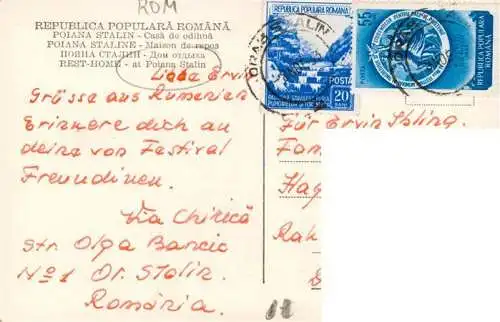 ROM
REPUBLICA POPULARĂ ROMÂNĂ
POIANA STALIN - Casă de odihnă
POIANA STALINE - Maison de repos
ПОЯНА СТАЛИН - Дом отдыха
REST-HOME - at Poiana Stalin
Liebe Ervin
Grüsse aus Rumenien
Erinnere dich an
deine von Festival
Freundinen.
Via Chirică
Str. Olga Bancic
Nº 1 Or. Stalin.
România.
ORAȘUL STALIN
REPUBLICA POPULARA ROMANA
POSTA
20
BANI
55
REPUBLICA POPULARA ROMANA
Für Ervin
Fam
Hag
Rak